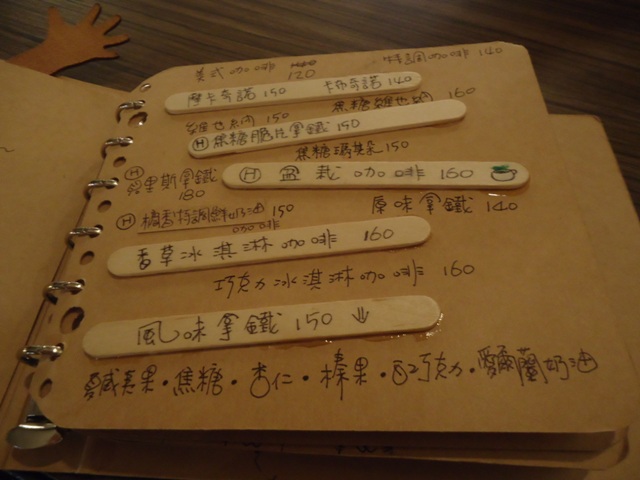 美式咖啡 120
特調咖啡 140
摩卡奇諾 150 卡布奇諾 140
維也納 150
焦糖維也納 160
Ⓗ 焦糖脆片拿鐵 150
焦糖瑪其朵 150
Ⓗ
里斯拿鐵
180
Ⓗ 盆栽咖啡 160
Ⓗ 橘香特調鮮奶油 150
咖啡
原味拿鐵 140
香草冰淇淋咖啡 160
巧克力冰淇淋咖啡 160
風味拿鐵 150 ↓
夏威夷果・焦糖・杏仁・榛果・巧克力・愛爾蘭奶油